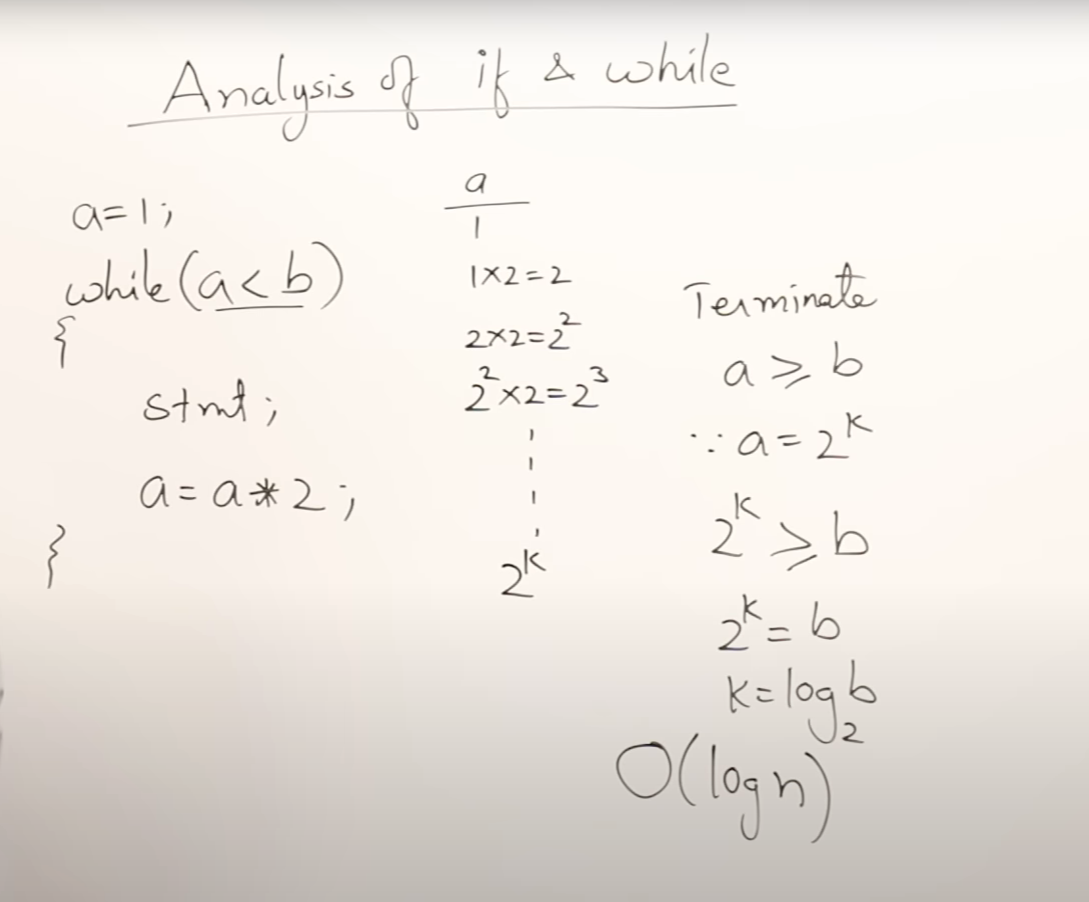 Analysis of if & while
a=1;
while(a<b)
{
stmt;
a=a*2;
}
a
1
1×2=2
2×2=2²
2²×2=2³
2ᵏ
Terminate
a≥b
∵ a=2ᵏ
2ᵏ≥b
2ᵏ=b
k=log₂b
O(log n)